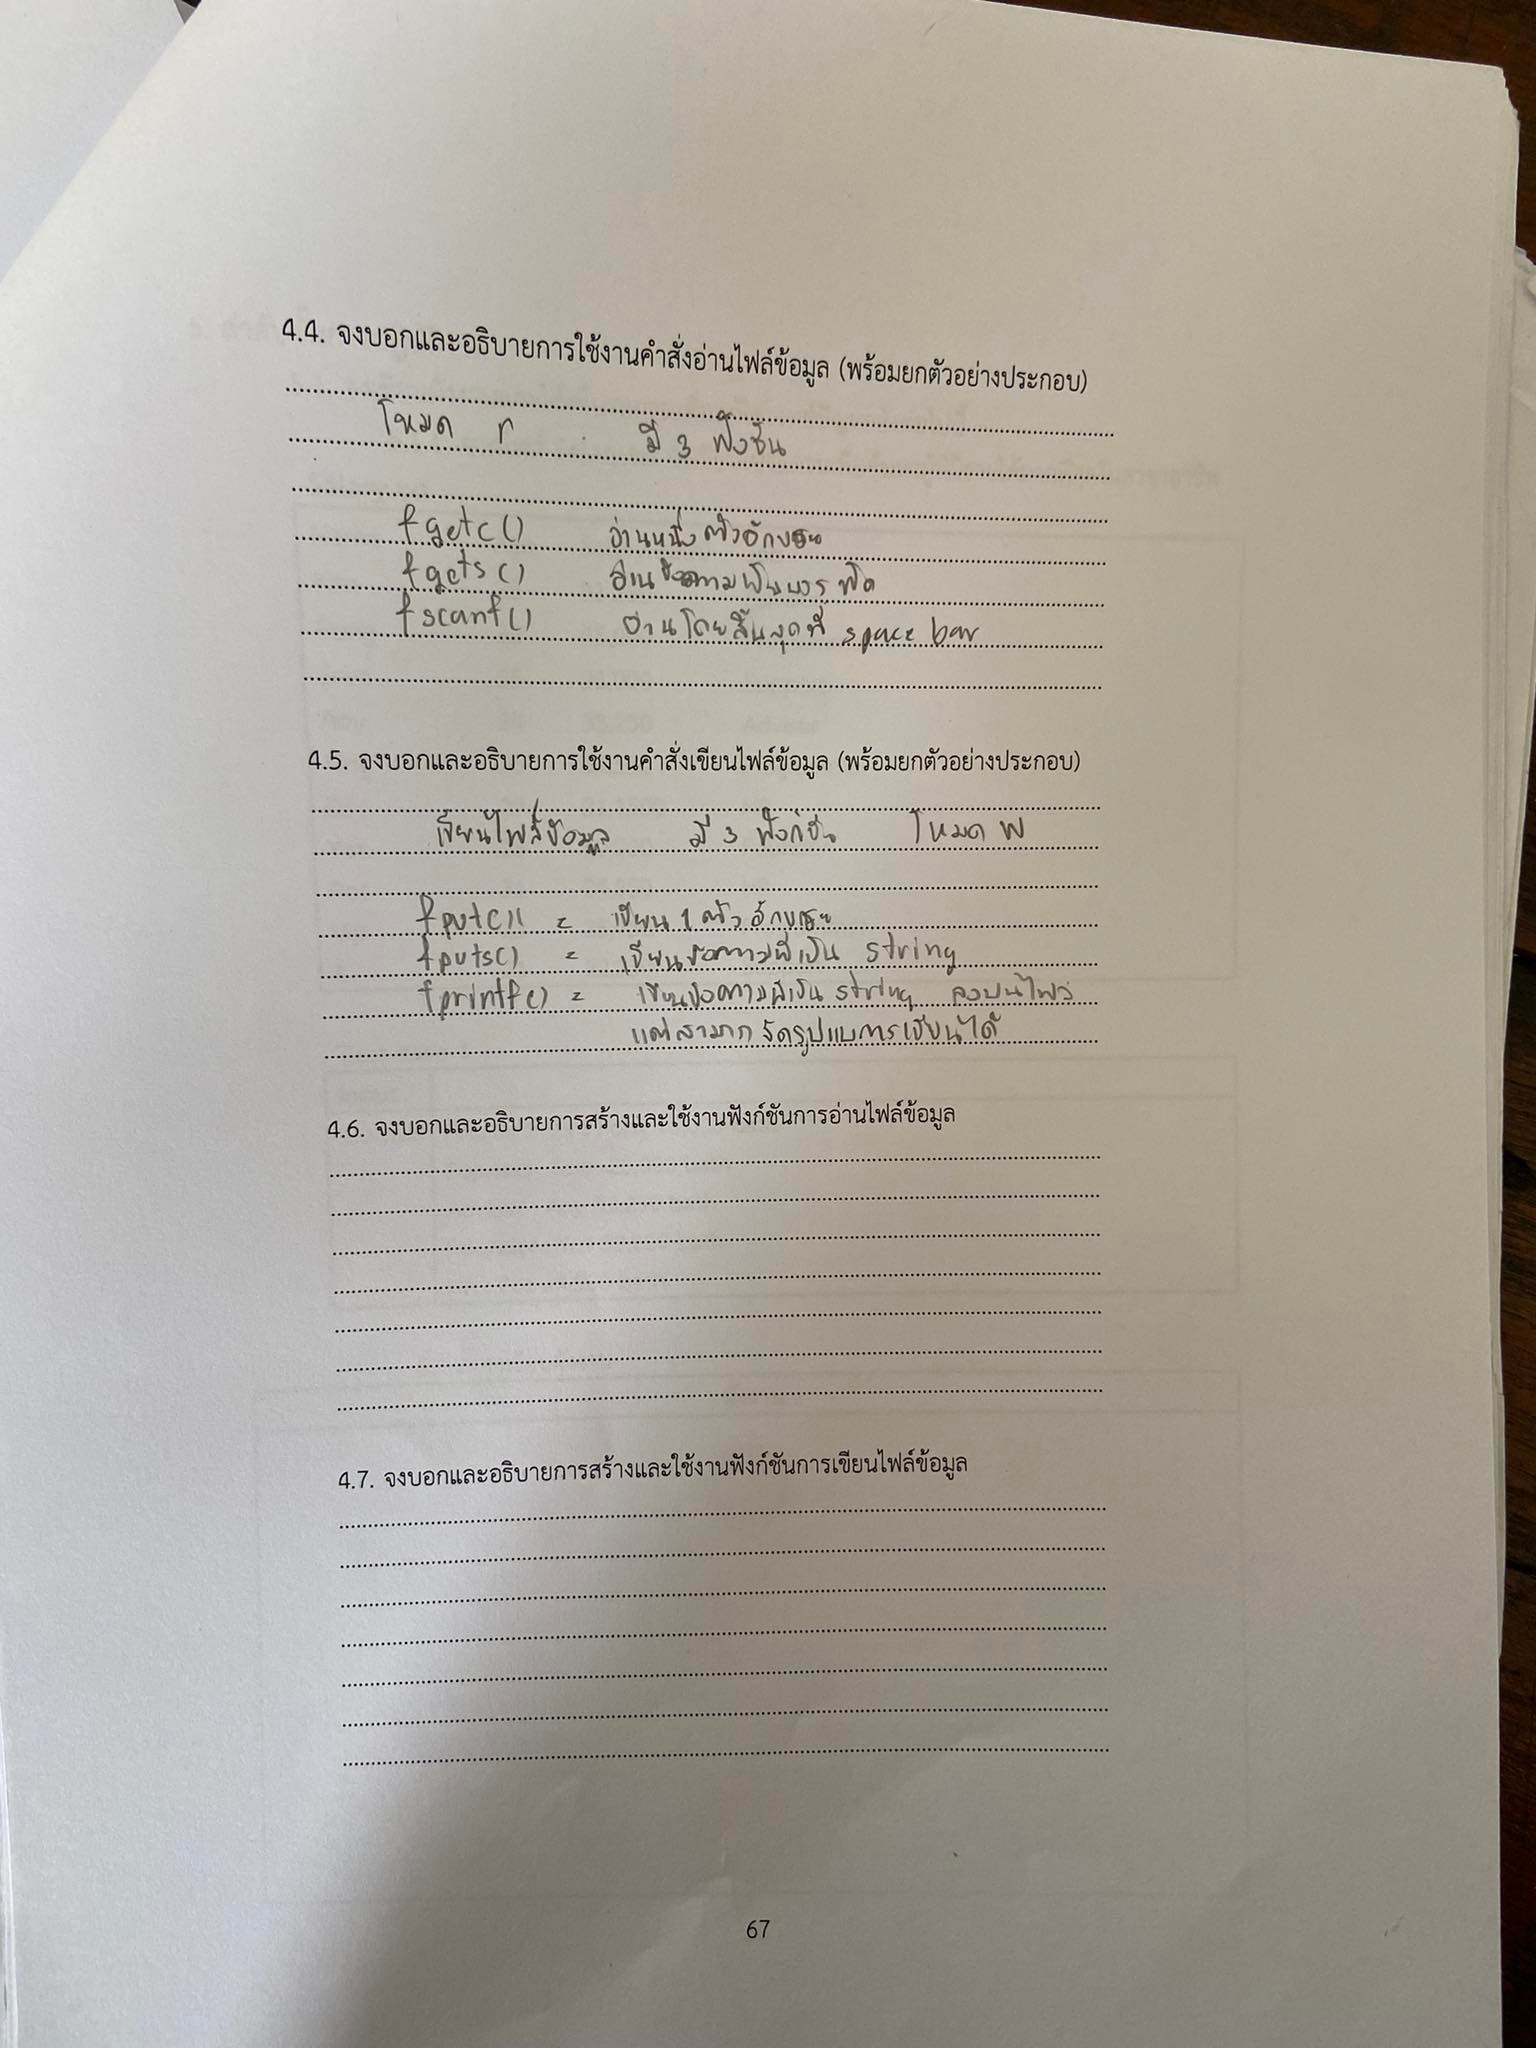 4.4. จงบอกและอธิบายการใช้งานคำสั่งอ่านไฟล์ข้อมูล (พร้อมยกตัวอย่างประกอบ)
โหมด r มี 3 ฟังชัน
fgetc() อ่านหนึ่งตัวอักษร
fgets() อ่านข้อความเป็นบรรทัด
fscanf() อ่านโดยสิ้นสุดที่ space bar
4.5. จงบอกและอธิบายการใช้งานคำสั่งเขียนไฟล์ข้อมูล (พร้อมยกตัวอย่างประกอบ)
เขียนไฟล์ข้อมูล มี 3 ฟังก์ชัน โหมด w
fputc() = เขียน 1 ตัวอักษร
fputs() = เขียนข้อความที่เป็น string
fprintf() = เขียนข้อความที่เป็น string ลงบนไฟล์
แต่สามาถ จัดรูปแบบการเขียนได้
4.6. จงบอกและอธิบายการสร้างและใช้งานฟังก์ชันการอ่านไฟล์ข้อมูล
4.7. จงบอกและอธิบายการสร้างและใช้งานฟังก์ชันการเขียนไฟล์ข้อมูล
67